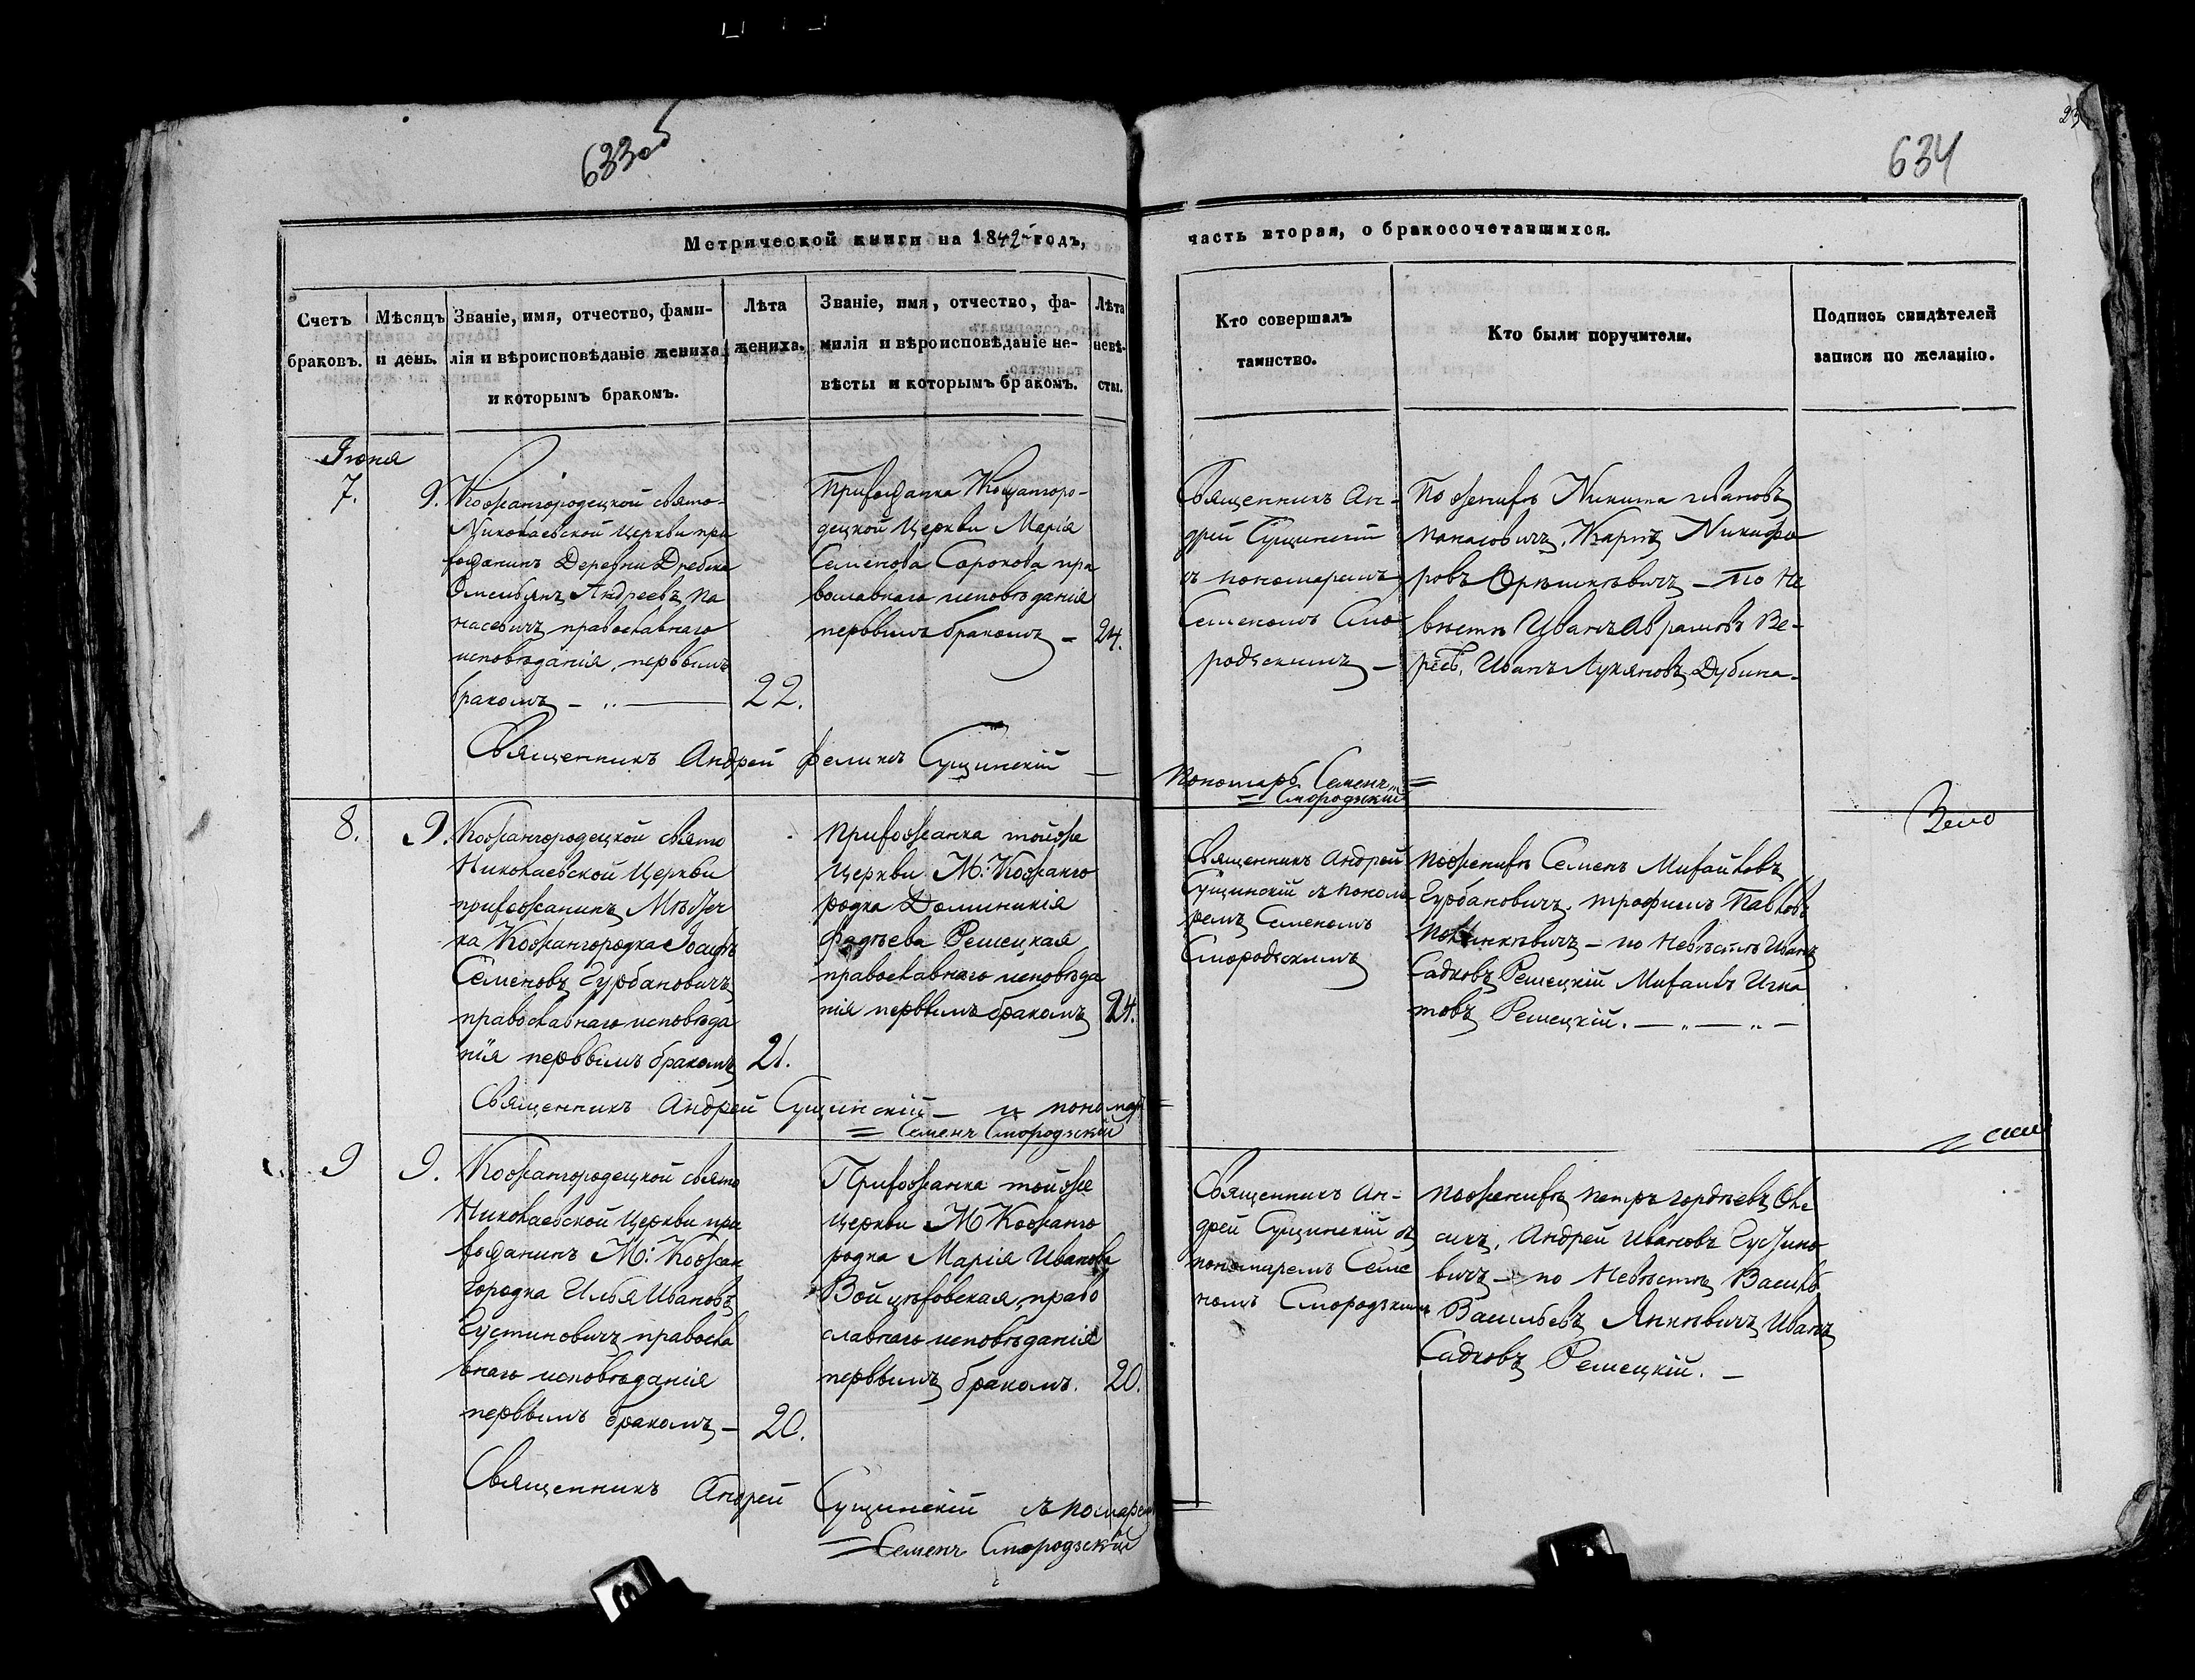 633об
634
23
Метрической книги на 1842 годъ,
часть вторая, о бракосочетавшихся.
Счетъ браковъ.
Мѣсяцъ и день.
Званіе, имя, отчество, фами-
лія и вѣроисповѣданіе жениха
и которымъ бракомъ.
Лѣта
жениха.
Званіе, имя, отчество, фа-
милія и вѣроисповѣданіе не-
вѣсты и которымъ бракомъ.
Лѣта
невѣ-
сты.
Кто совершалъ
таинство.
Кто были поручители.
Подпись свидѣтелей
записи по желанію.
Іюня
7.
9.
Кожангородецкой свято-
Николаевской Церкви при
хожанинъ Деревни Дребска
Омельянъ Андреевъ Па
насевичъ православнаго
исповѣданія, первымъ
бракомъ
22.
Прихожанка Кожангоро-
децкой Церкви Марія
Семенова Сорокова пра
вославнаго исповѣданія
первымъ бракомъ –
24.
Священникъ Ан-
дрей Сущинскій
съ пономаремъ
Семеномъ Смо
родскимъ –
По женихѣ Никита Ивановъ
Панасовичъ, Карпъ Никифо
ровъ Орѣшкѣвичъ – По не
вѣстѣ Иванъ Аврамовъ Ве-
ресъ, Иванъ Лукяновъ Дубина.
Священникъ Андрей Феликсъ Сущинскій
Пономарь Семенъ
Смородзскій
8.
9.
Кожангородецкой свято
Николаевской Церкви
прихожанинъ Мѣстеч
ка Кожангородка Іосифъ
Семеновъ Гурбановичъ
православнаго исповѣда
нія первымъ бракомъ
21.
Прихожанка тойже
Церкви М: Кожанго
родка Доминикія
Фадѣева Решецкая
православнаго исповѣда
нія первымъ бракомъ
24.
Священникъ Андрей
Сущинскій съ понома
ремъ Семеномъ
Смородскимъ
По женихѣ Семенъ Михайловъ
Гурбановичъ, Трофимъ Павловъ
– по невѣстѣ Иванъ
Садковъ Решецкій Михаилъ Игна
товъ Решецкій.
Священникъ Андрей Сущинскій – и пономарь
Семенъ Смородзскій
9
9.
Кожангородецкой свято
Николаевской Церкви при
хожанинъ М: Кожан
городка Илья Ивановъ
Густиновичъ правосла
внаго исповѣданія
первымъ бракомъ –
20.
Прихожанка тойже
Церкви М Кожанго
родка Марія Иванова
Войцѣховская, право
славнаго исповѣданія
первымъ бракомъ.
20.
Священникъ Ан-
дрей Сущинскій съ
пономаремъ Семе
номъ Смородскимъ
По женихѣ Петръ Гордѣевъ Ове
сикъ, Андрей Ивановъ Густино
вичъ – по невѣстѣ Василь
Васильевъ Янкѣвичъ, Иванъ
Садковъ Решецкій. –
Священникъ Андрей Сущинскій съ
Семенъ Смородзскій